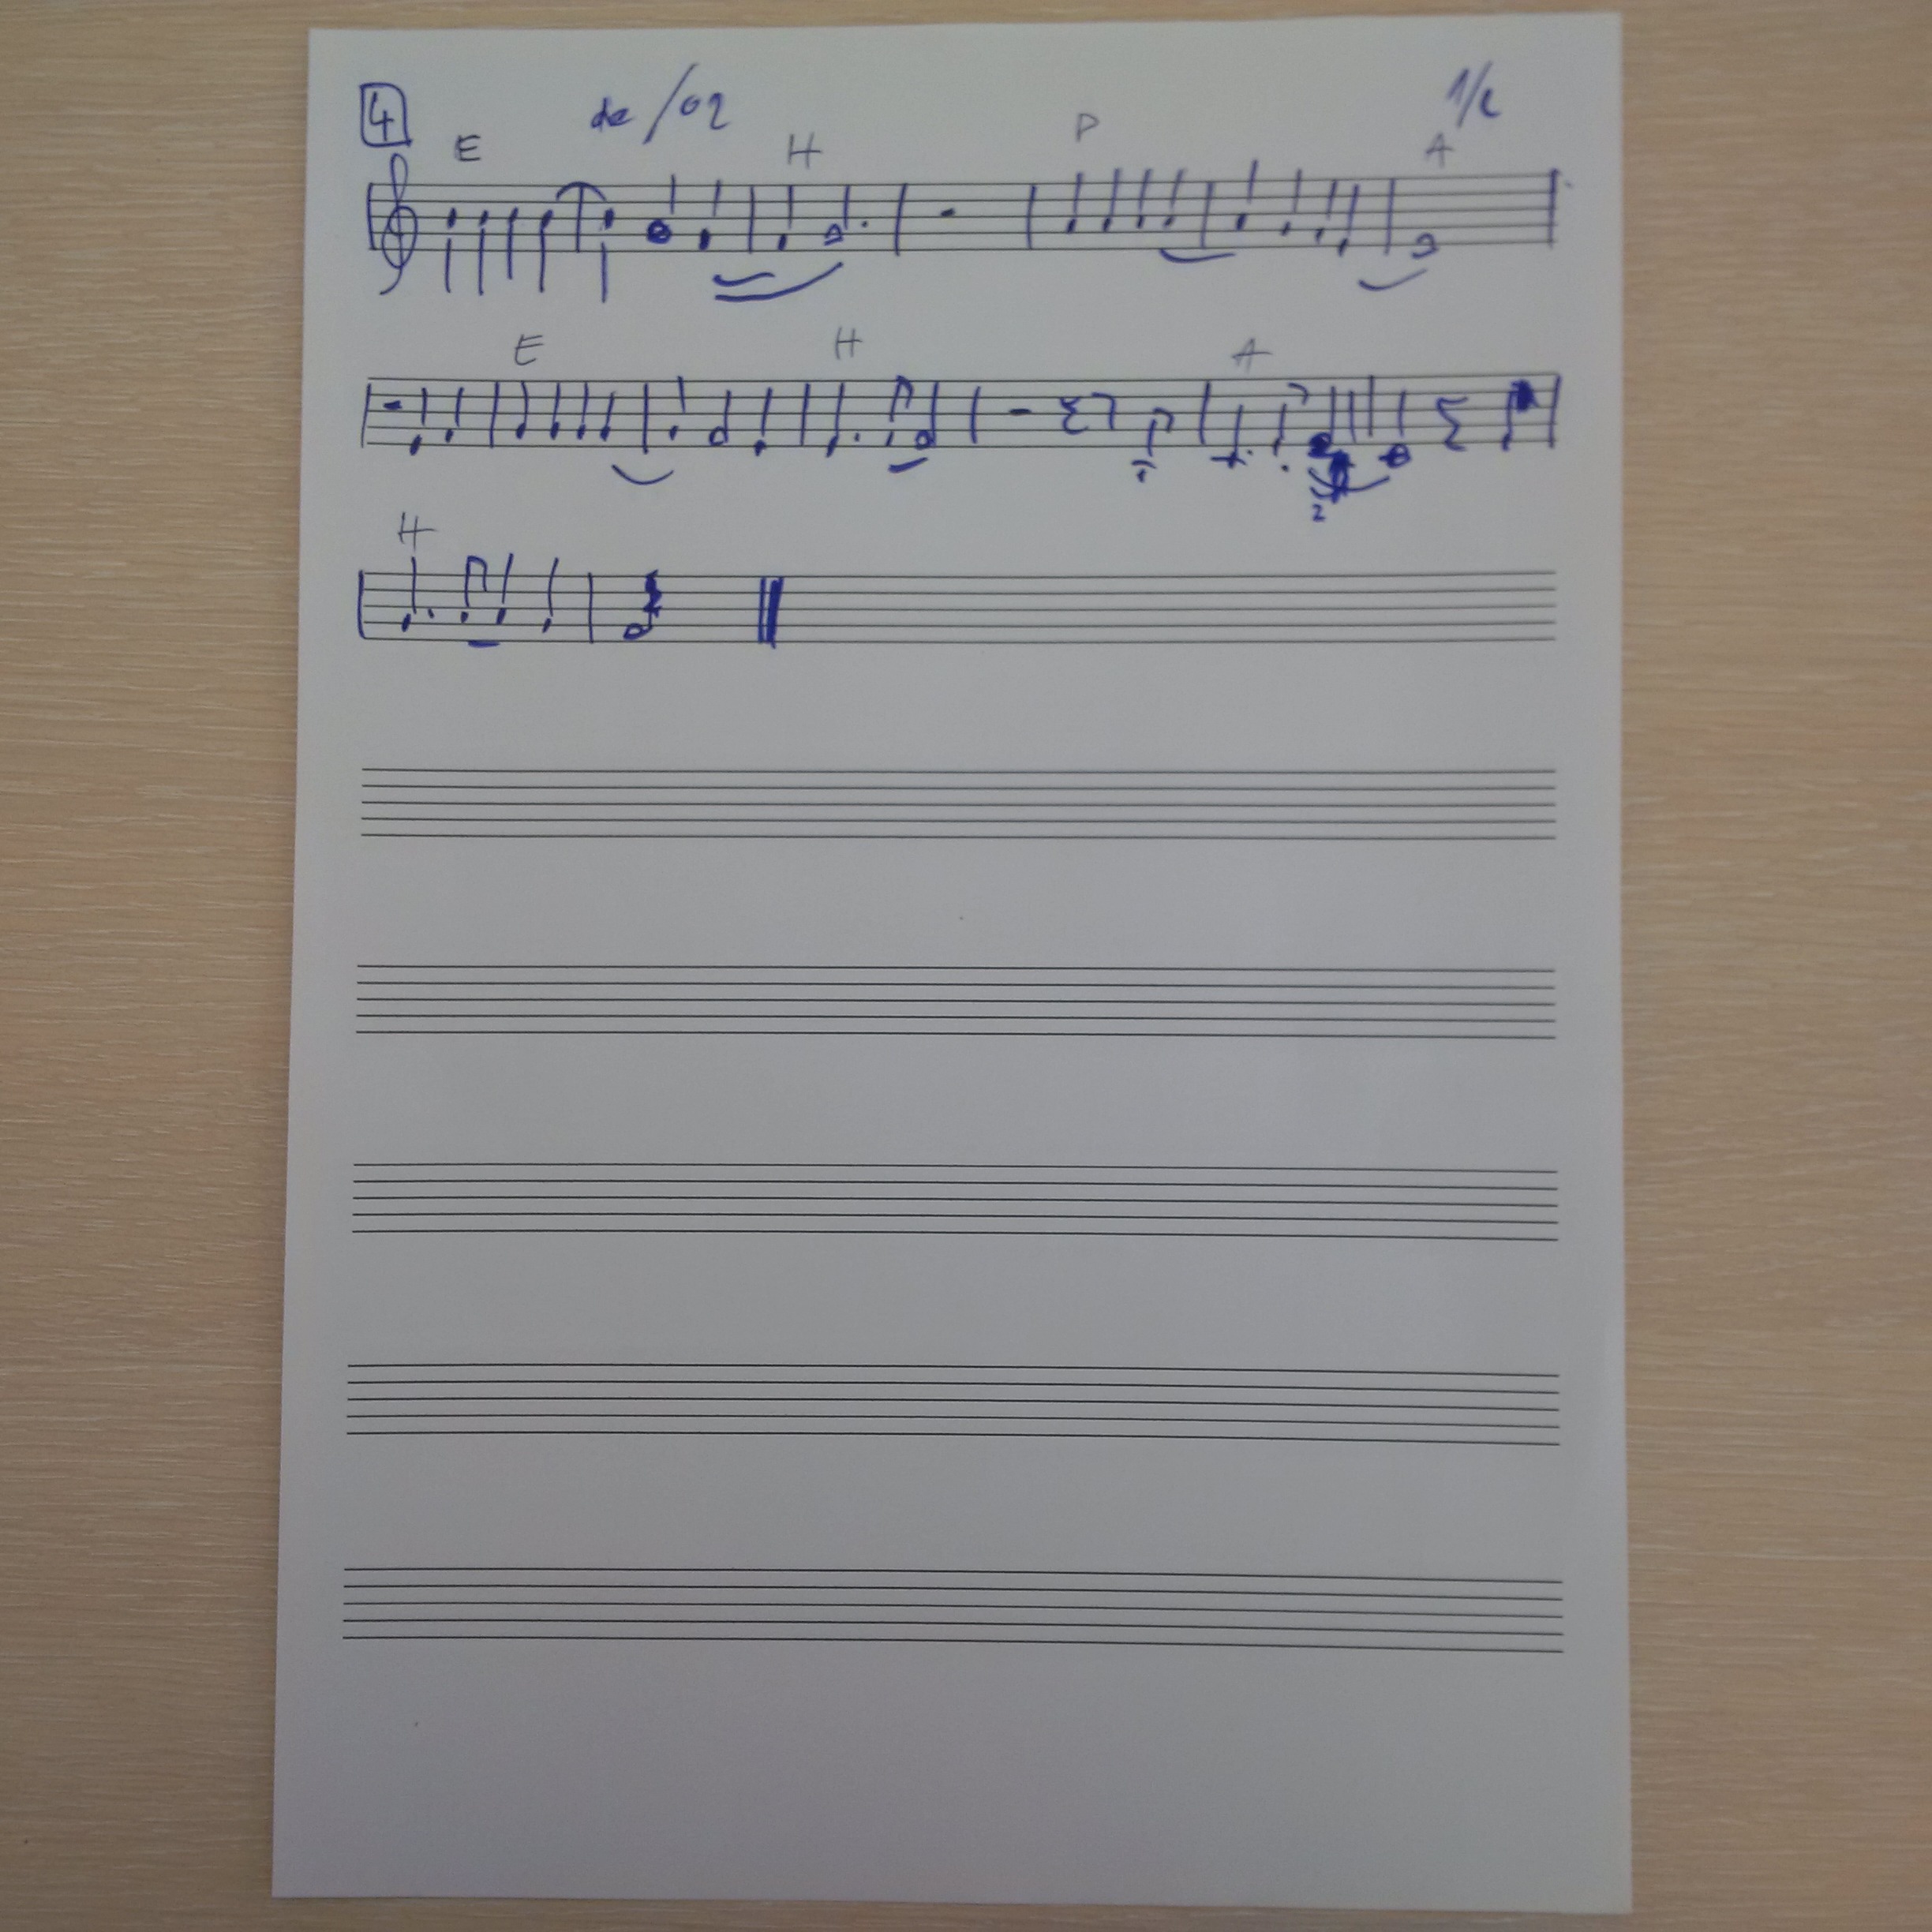 4 de/02 1/2
E H D A
E H A
2
H